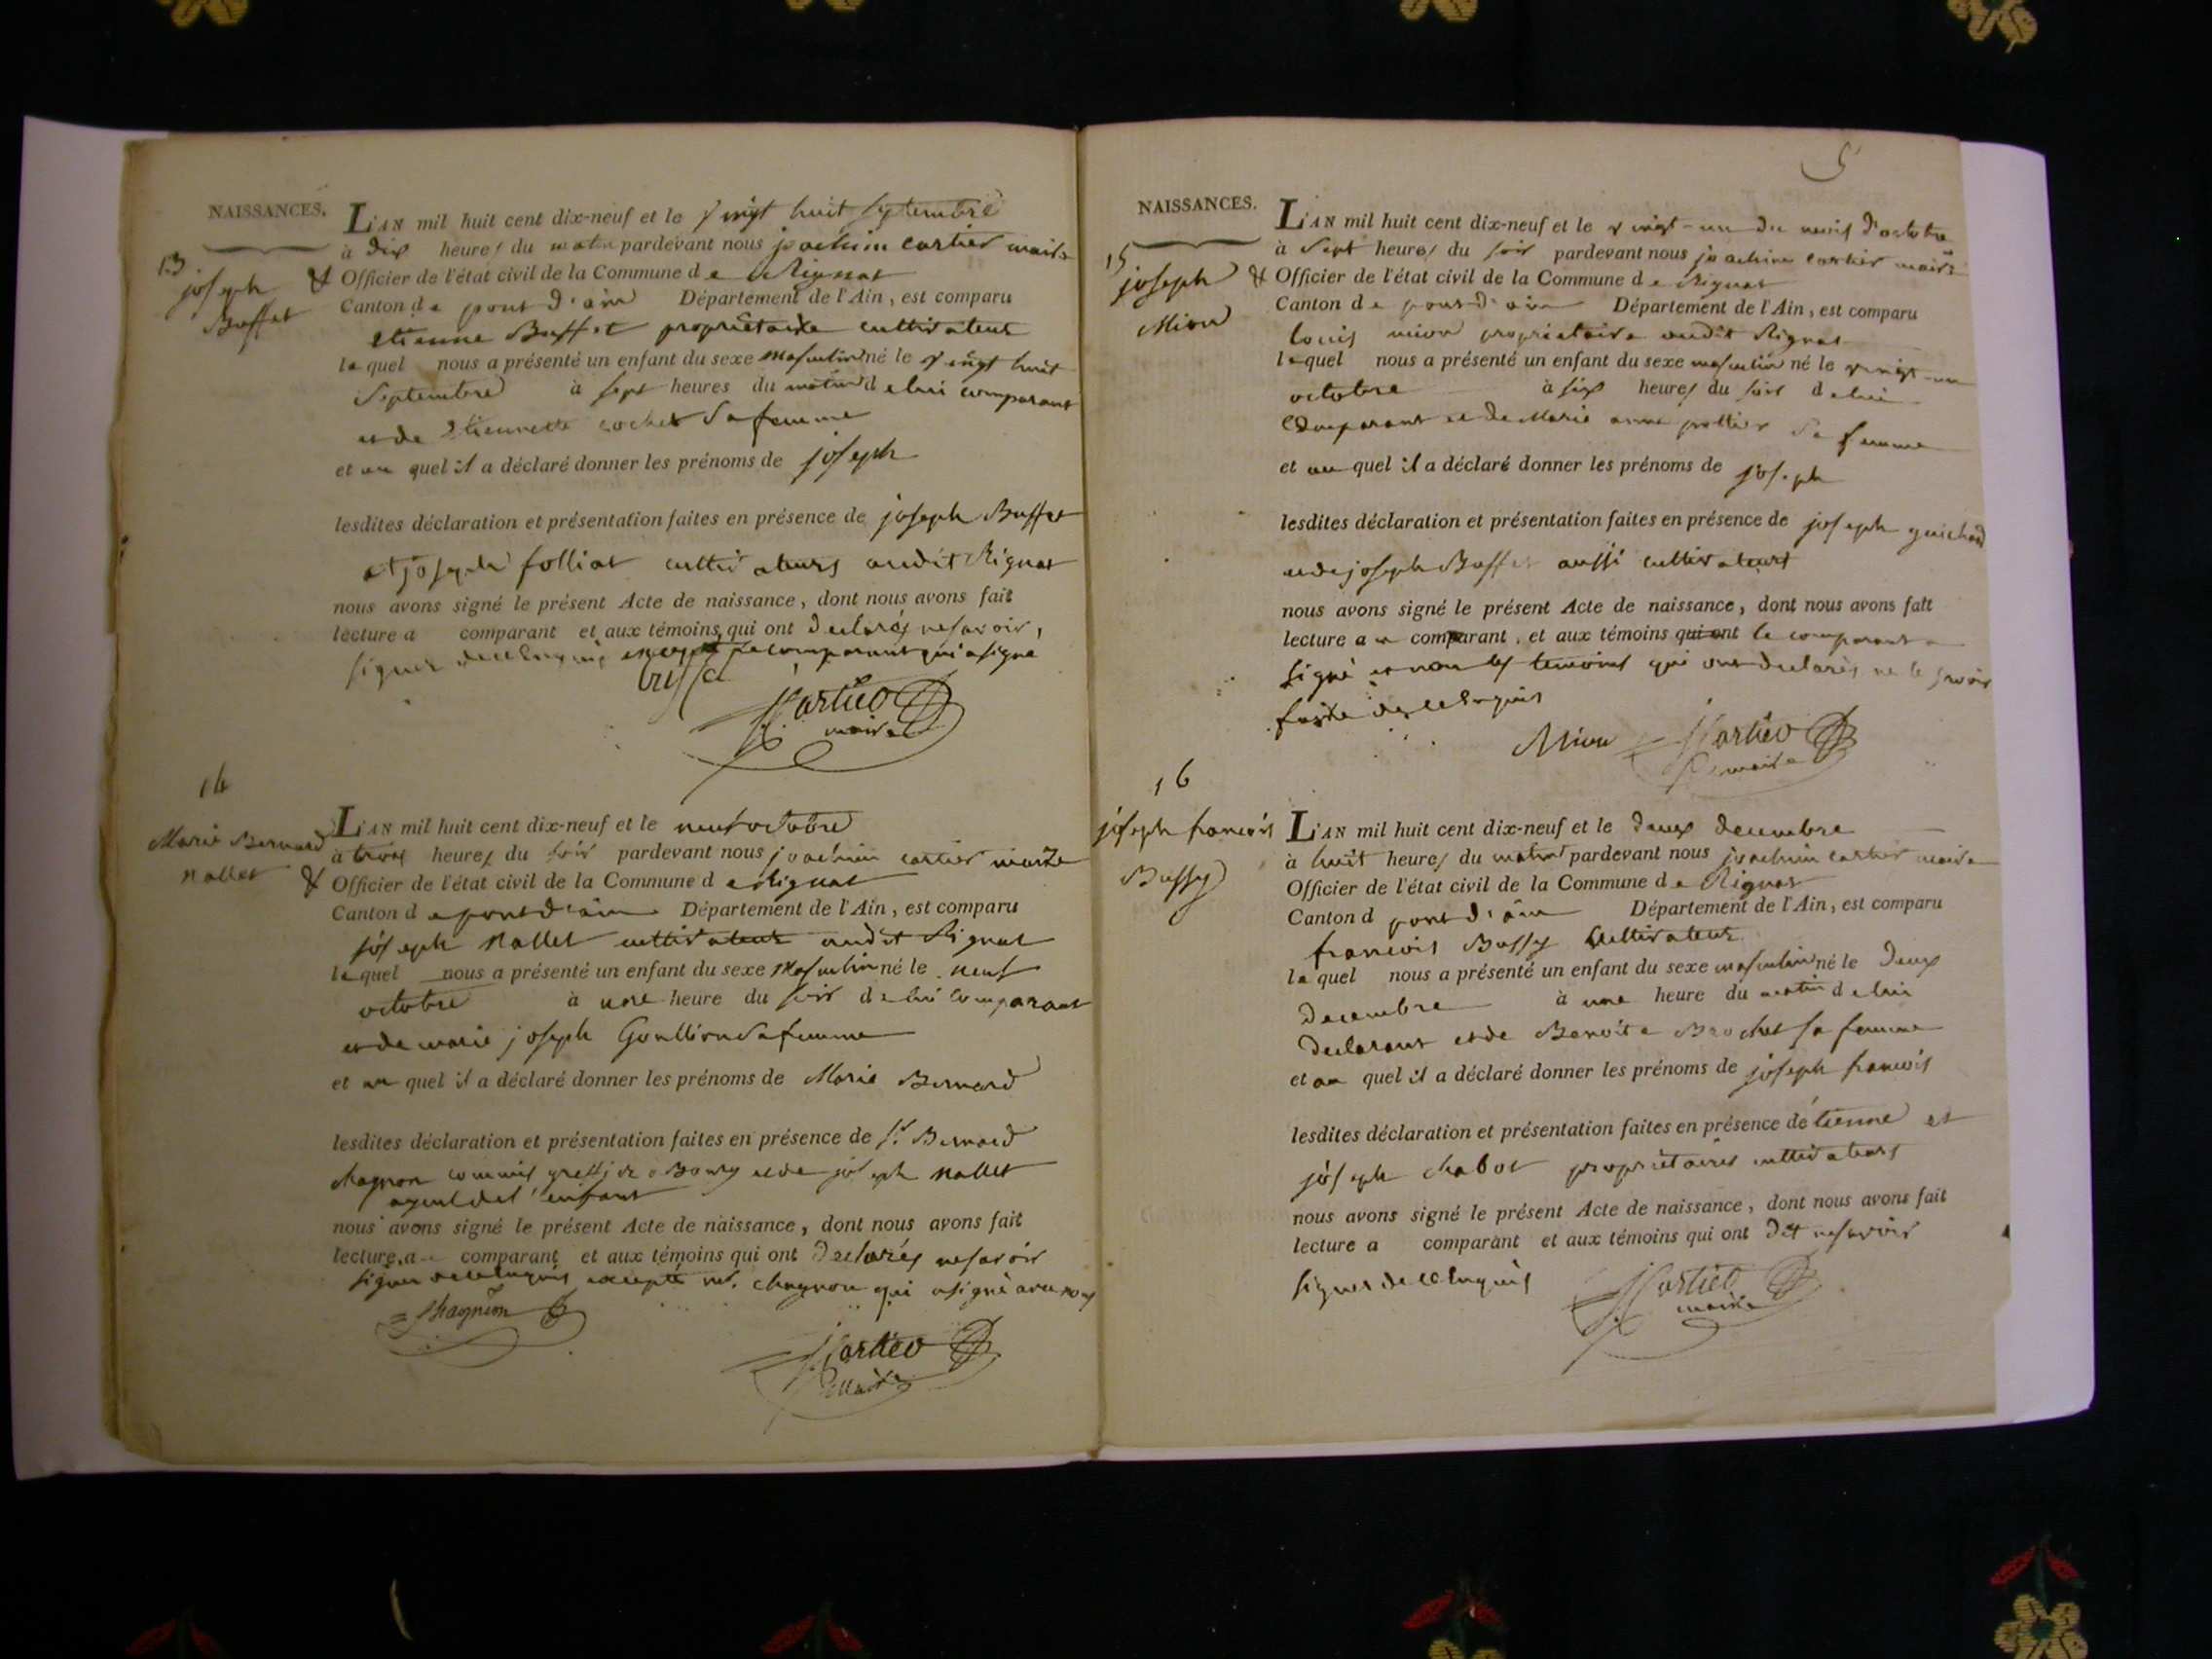 NAISSANCES.
13
joseph
Buffet
L'AN mil huit cent dix-neuf et le vingt huit septembre
à dix heures du matin pardevant nous joachim cartier maire
Officier de l'état civil de la Commune de Rignat
Canton de pont d'ain Département de l'Ain, est comparu
etienne Buffet propriétaire cultivateur
lequel nous a présenté un enfant du sexe masculin né le vingt huit
septembre à sept heures du matin de lui comparant
et de etiennette cochet sa femme
et au quel il a déclaré donner les prénoms de joseph
lesdites déclaration et présentation faites en présence de joseph Buffet
et joseph folliat cultivateurs audit Rignat
nous avons signé le présent Acte de naissance, dont nous avons fait
lecture a comparant et aux témoins qui ont declarés ne savoir,
signer de ce enquis excepté le comparant qui a signé
Cartier
maire
14
Marie Bernard
Mallet
L'AN mil huit cent dix-neuf et le neuf octobre
à trois heures du soir pardevant nous joachim cartier maire
Officier de l'état civil de la Commune de Rignat
Canton de pont d'ain Département de l'Ain, est comparu
joseph Mallet cultivateur audit Rignat
lequel nous a présenté un enfant du sexe masculin né le neuf
octobre à une heure du soir de lui comparant
et de marie joseph Goullion sa femme
et au quel il a déclaré donner les prénoms de Marie Bernard
lesdites déclaration et présentation faites en présence de Sr. Bernard
chagnon commis greffier a Bourg et de joseph Mallet
ayeul de l'enfant
nous avons signé le présent Acte de naissance, dont nous avons fait
lecture a comparant et aux témoins qui ont declarés ne savoir
signer de ce enquis excepté mr. chagnon qui a signé avec nous
Chagnon
Cartier
Maire
5
NAISSANCES.
15
joseph
Mion
L'AN mil huit cent dix-neuf et le vingt-un du mois d'octobre
à sept heures du soir pardevant nous joachim cartier maire
Officier de l'état civil de la Commune de Rignat
Canton de pont d'ain Département de l'Ain, est comparu
louis mion propriétaire audit Rignat
lequel nous a présenté un enfant du sexe masculin né le vingt-un
octobre à six heures du soir de lui
comparant et de Marie anne pottier sa femme
et au quel il a déclaré donner les prénoms de joseph
lesdites déclaration et présentation faites en présence de joseph guichard
et de joseph Buffet aussi cultivateurs
nous avons signé le présent Acte de naissance, dont nous avons fait
lecture au comparant, et aux témoins qui ont le comparant a
signé et non les temoins qui ont declarés ne le savoir
faire de ce enquis
Mion Cartier
maire
16
joseph francois
Bussy
L'AN mil huit cent dix-neuf et le deux decembre
à huit heures du matin pardevant nous joachim cartier maire
Officier de l'état civil de la Commune de Rignat
Canton d pont d'ain Département de l'Ain, est comparu
francois Bussy cultivateur
lequel nous a présenté un enfant du sexe masculin né le deux
decembre à une heure du matin de lui
declarant et de Benoite Brochet sa femme
et au quel il a déclaré donner les prénoms de joseph francois
lesdites déclaration et présentation faites en présence d'étienne et
joseph chabot propriétaires cultivateurs
nous avons signé le présent Acte de naissance, dont nous avons fait
lecture a comparant et aux témoins qui ont dit ne savoir
signer de ce enquis
Cartier
maire